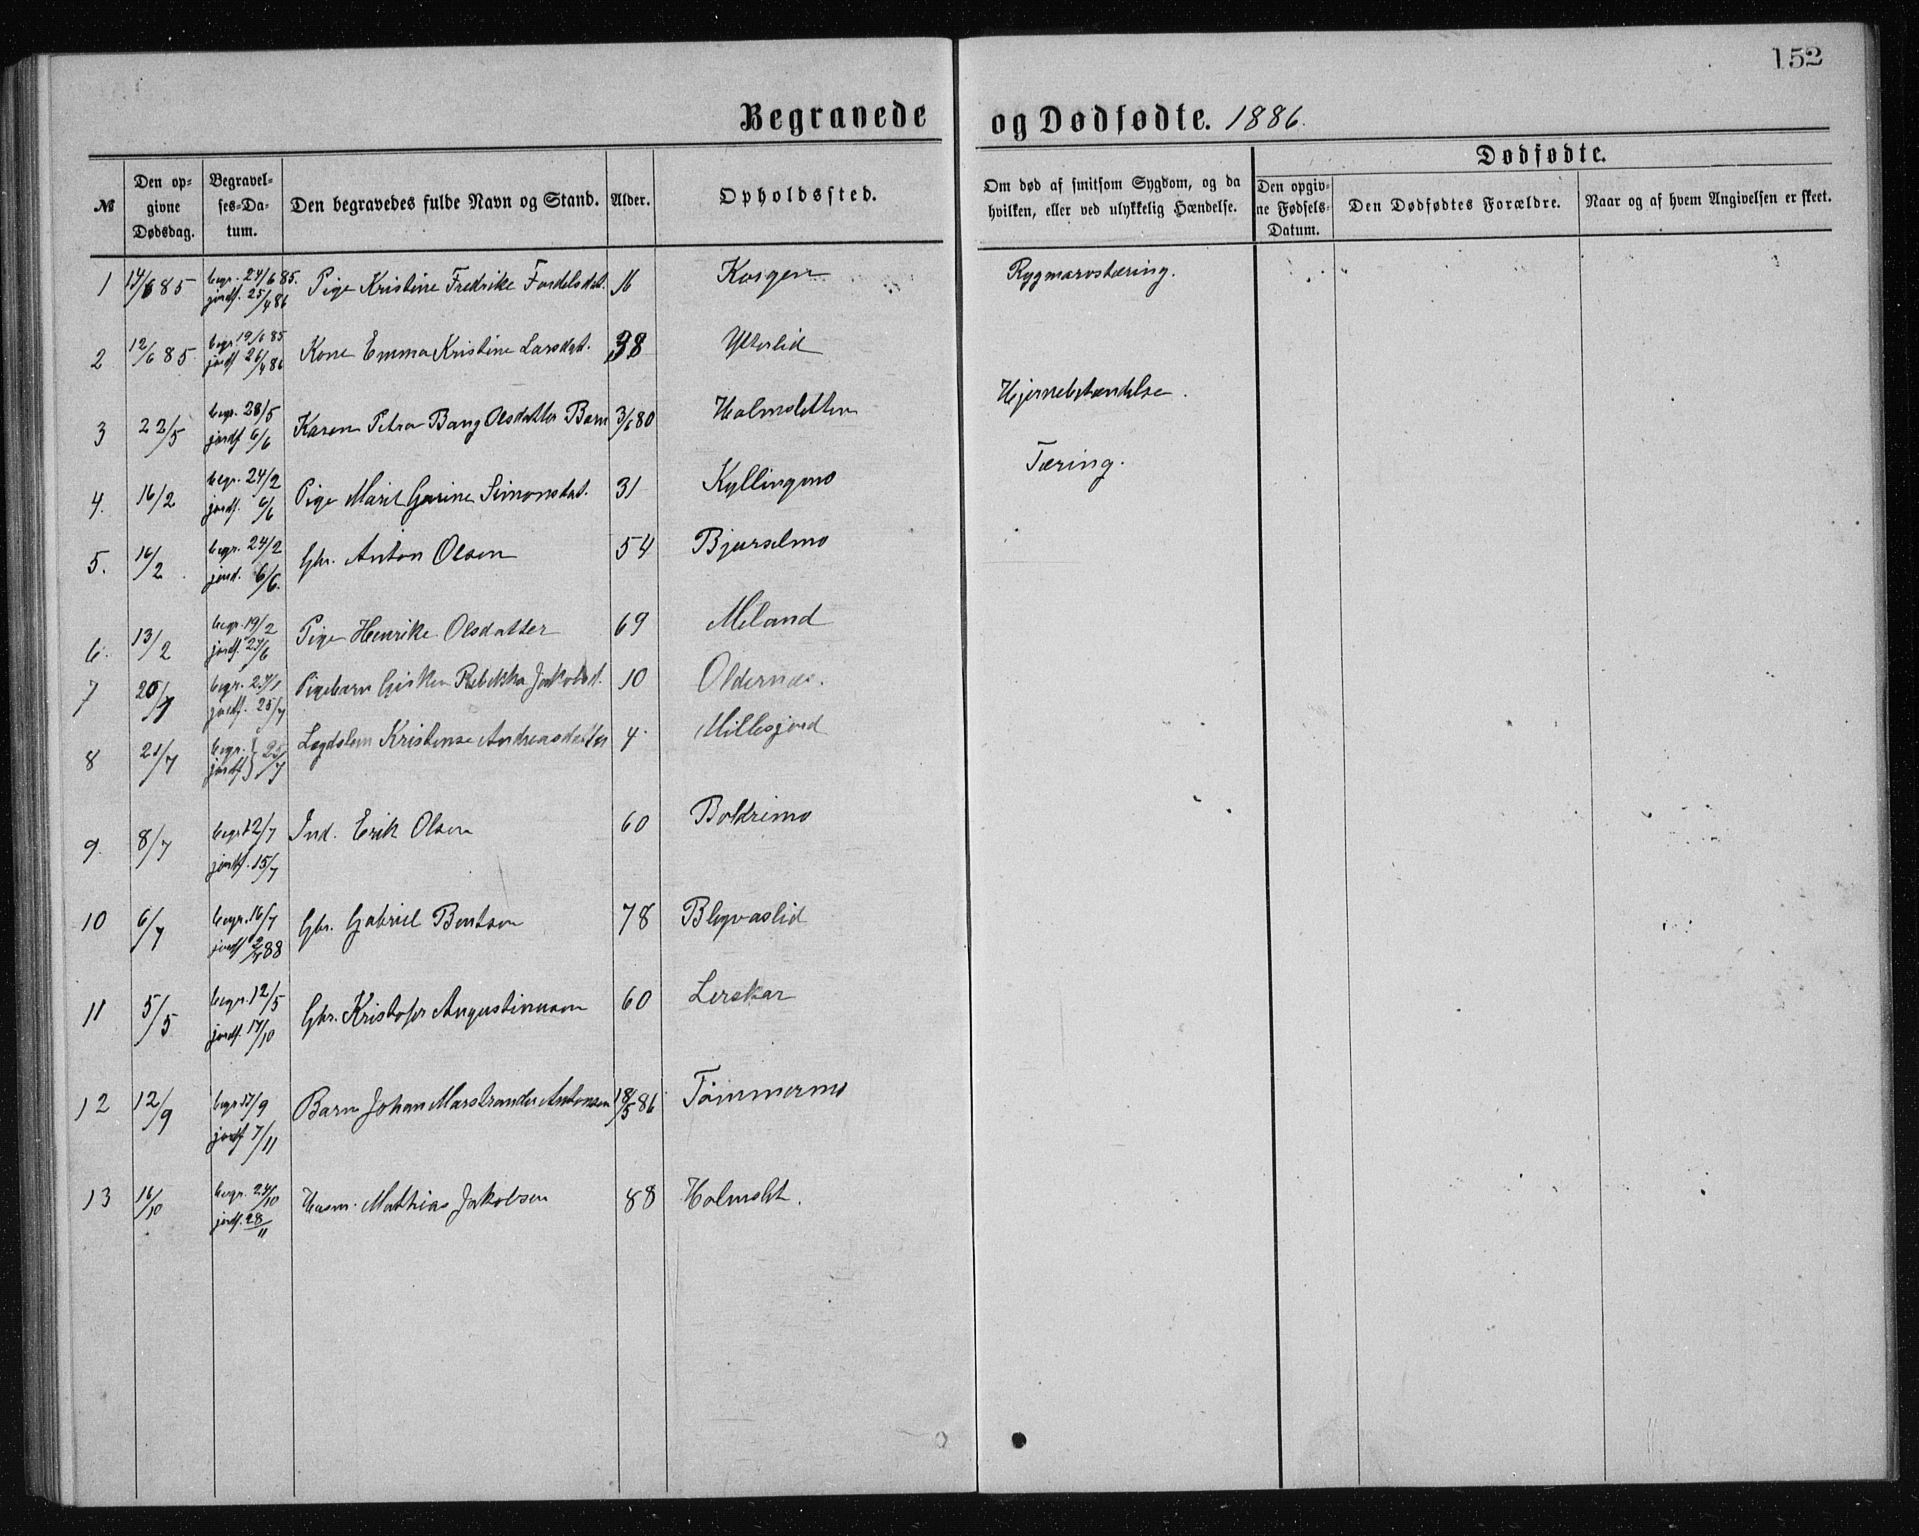 152
Begravede og Dødfødte. 1886.
Dødfødte.
№ Den op-givne Dødsdag. Begravel-ses-Da-tum. Den begravedes fulde Navn og Stand. Alder. Opholdssted. Om død af smitsom Sygdom, og da hvilken, eller ved ulykkelig Hændelse. Den opgiv-ne Fødsels-Datum. Den Dødfødtes Forældre. Naar og af hvem Angivelsen er skeet.
1 14/6 85 begr. 24/6 85. Pige Kristine Fredrike Fordelsdat. 16 Korgen Rygmarvstæring.
jordf. 25/4 86
2 12/6 85 begr. 19/6 85 Kone Emma Kristine Larsdat. 38 Ytterlid
jordf. 26/4 86
3 22/5 begr. 28/5 Karen Petra Bang Olsdatter Barn 3/6 80 Holmsletten Hjernebetændelse.
jordf 6/6
4. 16/2 begr. 24/2 Pige Marit Simonsdat. 31 Kyllingmo Tæring.
jordf. 6/6
5. 16/2 begr. 24/2 Gbr. Anton Olsen 54 Bjurselmo
jord. 6/6.
6. 13/2 begr. 19/2 Pige Henrike Olsdatter 69
jordf. 27/6
7 20/7 begr. Pigebarn Rebekka Jakobsd. 10 Oldernæs.
jordf. 25/7
8 21/7 begr. } 25/7 Lægdslem Kristense Andreasdatter 4
jordf.
9. 8/7 begr 12/7 Ind. Erik Olsen 60
jordf. 15/7
10 6/7 begr. 16/7 Gbr. Gabriel Bentsen 78
jordf 88
11 5/5 begr. 12/5 Gbr. Kristofer Augustinusen 60 Lerskar
jordf. 17/10
12 12/9 begr 17/9 Barn Johan Marstrander Antonsen 18/5 86 Tømmermo
jordf 7/11
13 16/10 begr. 24/10 Husm. Mathias Jakobsen 88 Holmslet.
jordf. 28/11